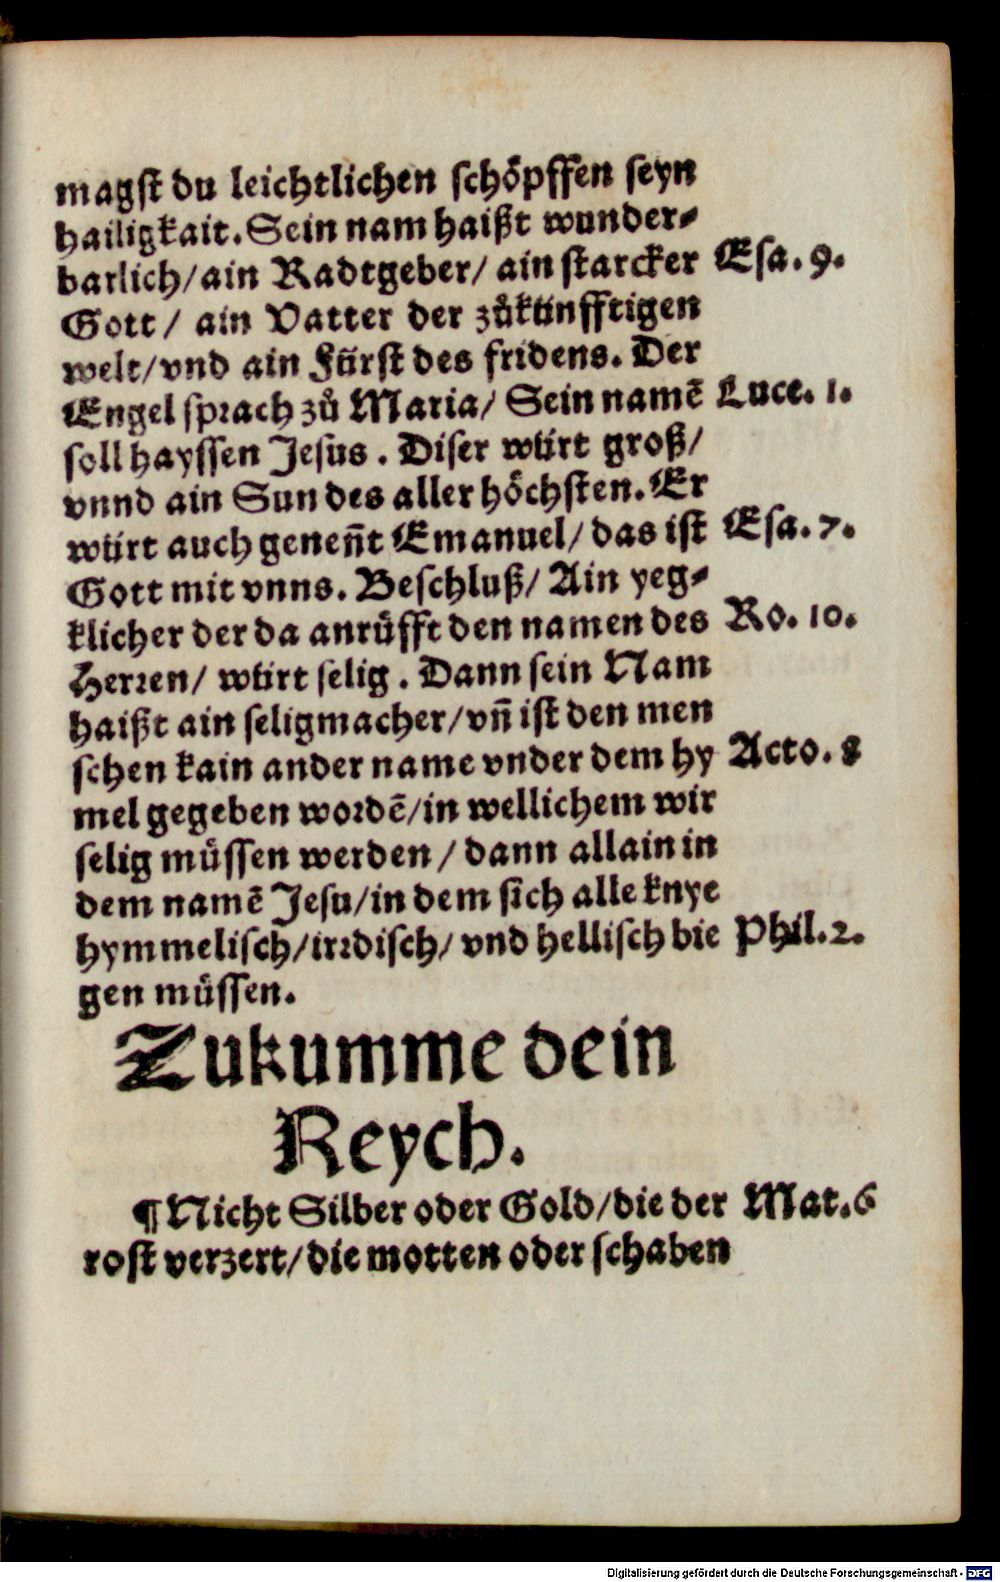 magst du leichtlichen schöpffen seyn
hailigkait. Sein nam haißt wunder-
barlich/ ain Radtgeber/ ain starcker Esa. 9.
Gott / ain Vatter der zůkünfftigen
welt/ vnd ain Fürst des fridens. Der
Engel sprach zů Maria/ Sein namē Luce. 1.
soll hayssen Jesus . Diser würt groß/
vnnd ain Sun des aller höchsten. Er
würt auch geneñt Emanuel/ das ist Esa. 7.
Gott mit vnns. Beschluß/ Ain yeg-
klicher der da anrüfft den namen des Ro. 10.
Herren/ würt selig . Dann sein Nam
haißt ain seligmacher/ vñ ist den men
schen kain ander name vnder dem hy Acto. 8
mel gegeben wordē/ in wellichem wir
selig müssen werden / dann allain in
dem namē Jesu/ in dem sich alle knye
hymmelisch/ irrdisch/ vnd hellisch bie Phil. 2.
gen müssen.
Zukumme dein
Reych.
¶ Nicht Silber oder Gold/ die der Mat. 6
rost verzert/ die motten oder schaben
Digitalisierung gefördert durch die Deutsche Forschungsgemeinschaft - DFG